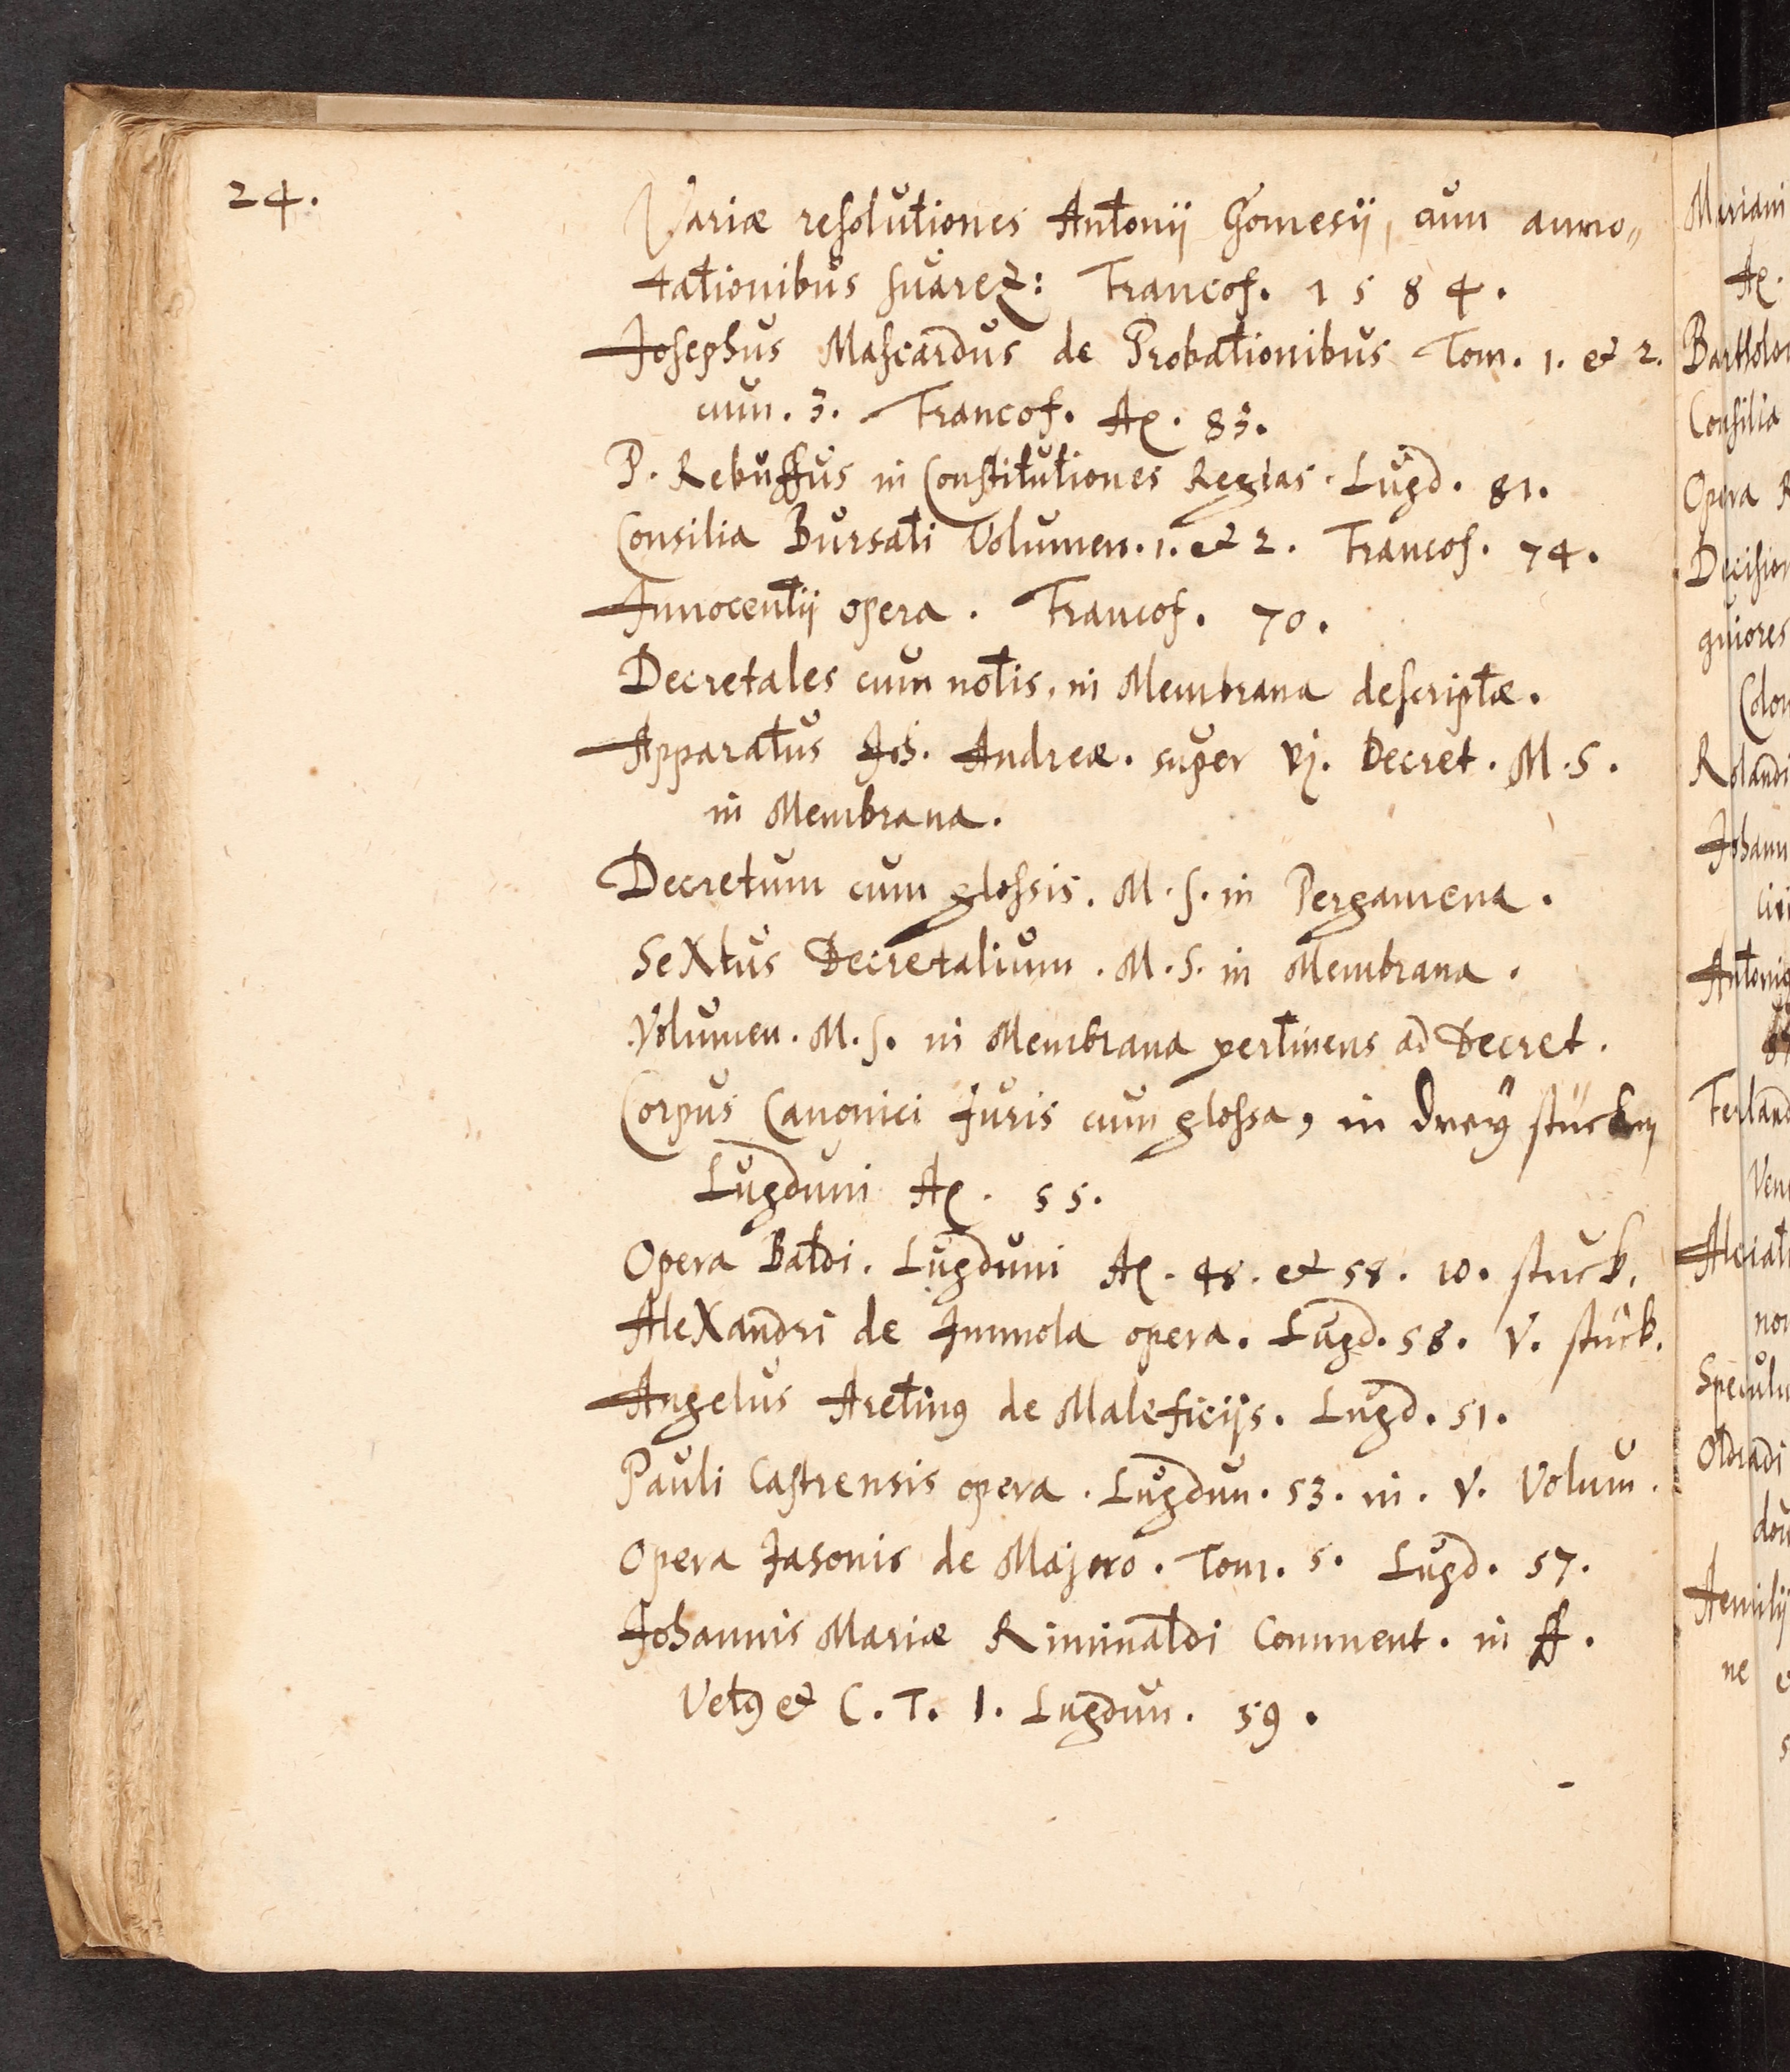 24.
Variæ resolutiones Antonij Gomesij, cum anno„
tationibus Suarez: Francof. 1584.
Josephus Mascardus de Probationibus Tom. 1. et 2.
cum. 3. Francof. Aͦ. 83.
P. Rebuffus in Constitutiones Regias. Lugd. 81.
Consilia Bursati Volumen. 1. et 2. Francof. 74.
Innocentij opera. Francof. 70.
Decretales cum notis, in Membrana descriptæ.
Apparatus Joh. Andreæ. super vj. Decret. M.S.
in Membrana.
Decretum cum glossis. M.S. in Pergamena.
SeXtus Decretalium. M.S. in Membrana.
Volumen. M.S. in Membrana pertinens ad Decret.
Corpus Canonici Juris cum glossa, in drey stücken
Lugduni Aͦ. 55.
Opera Baldi. Lugduni Aͦ. 48. et 58. 10. stuck.
AleXandri de Immola opera. Lugd. 58. V. stuck.
Angelus Aretinꝰ de Maleficijs. Lugd. 51.
Pauli Castrensis opera. Lugdun. 53. in. V. Volum.
Opera Jasonis de Majero. Tom. 5. Lugd. 57.
Johannis Mariæ Riminaldi Comment. in ff.
Vetꝰ et C. T. 1. Lugdun. 59.
Mariani
Aͦ.
Consilia
Opera R
Rolandi
Oldradi
ne